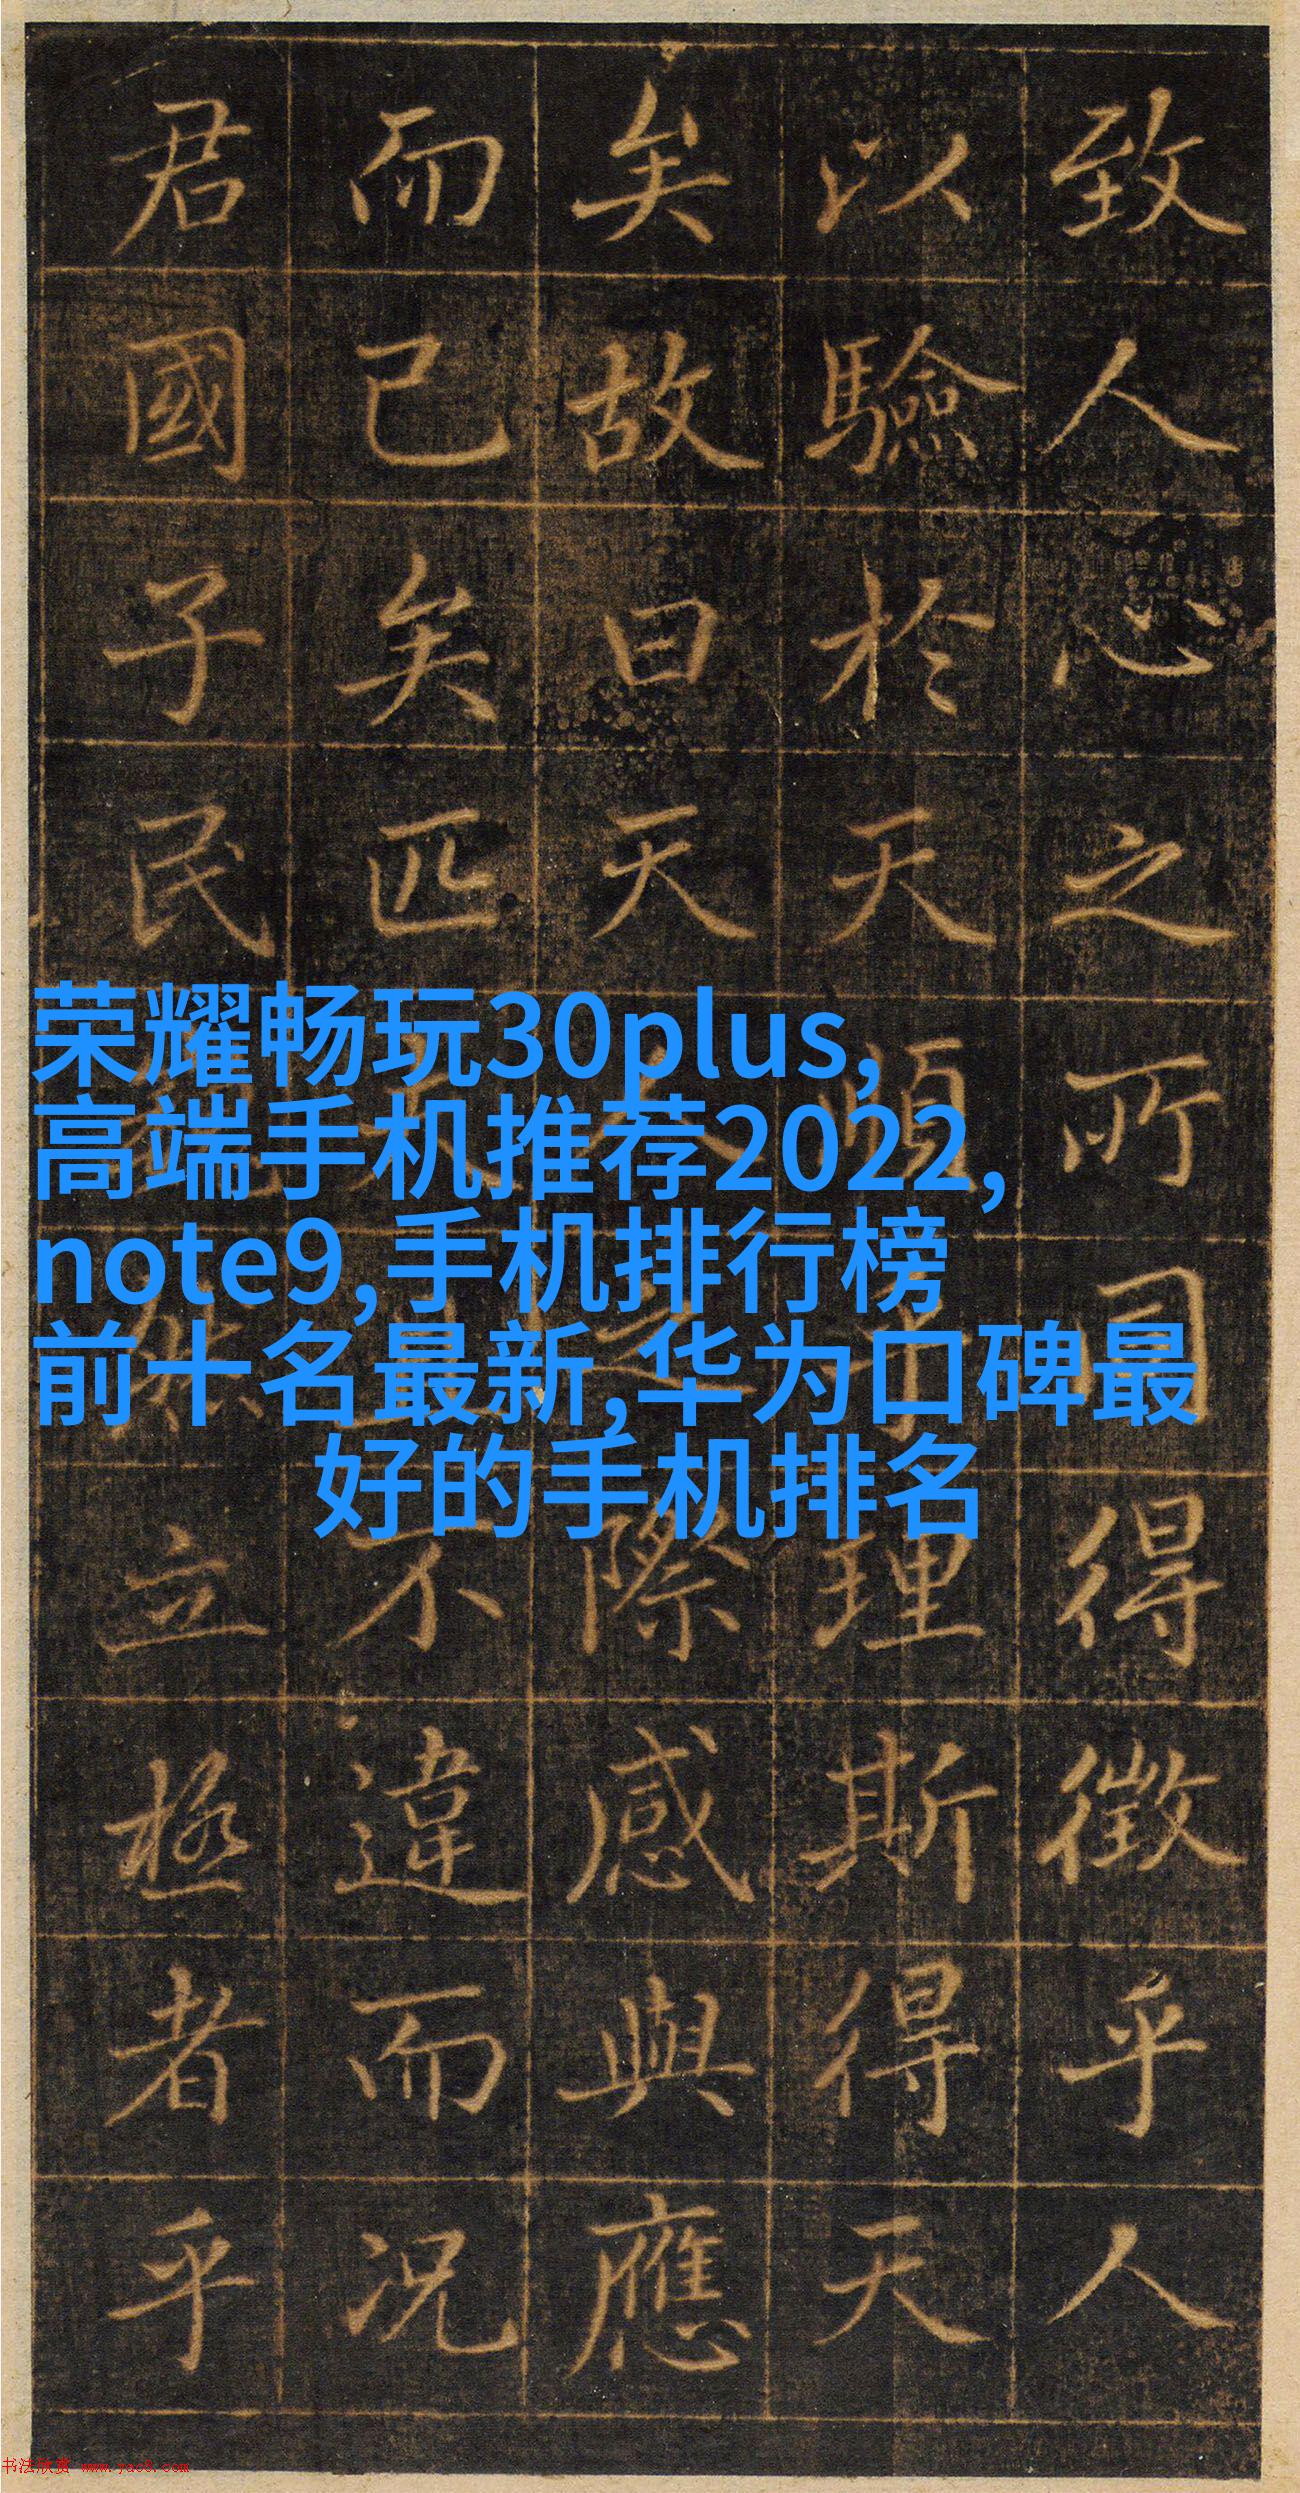 致人心之所同得徵乎人
以驗於天順乎理斯得天
矣故曰天人之際感與應
而已矣匹夫不違而況
君國子民然立極者乎
荣耀畅玩30plus,
高端手机推荐2022,
note9,手机排行榜
前十名最新,华为口碑最
好的手机排名
书法欣赏 www.yac8.com